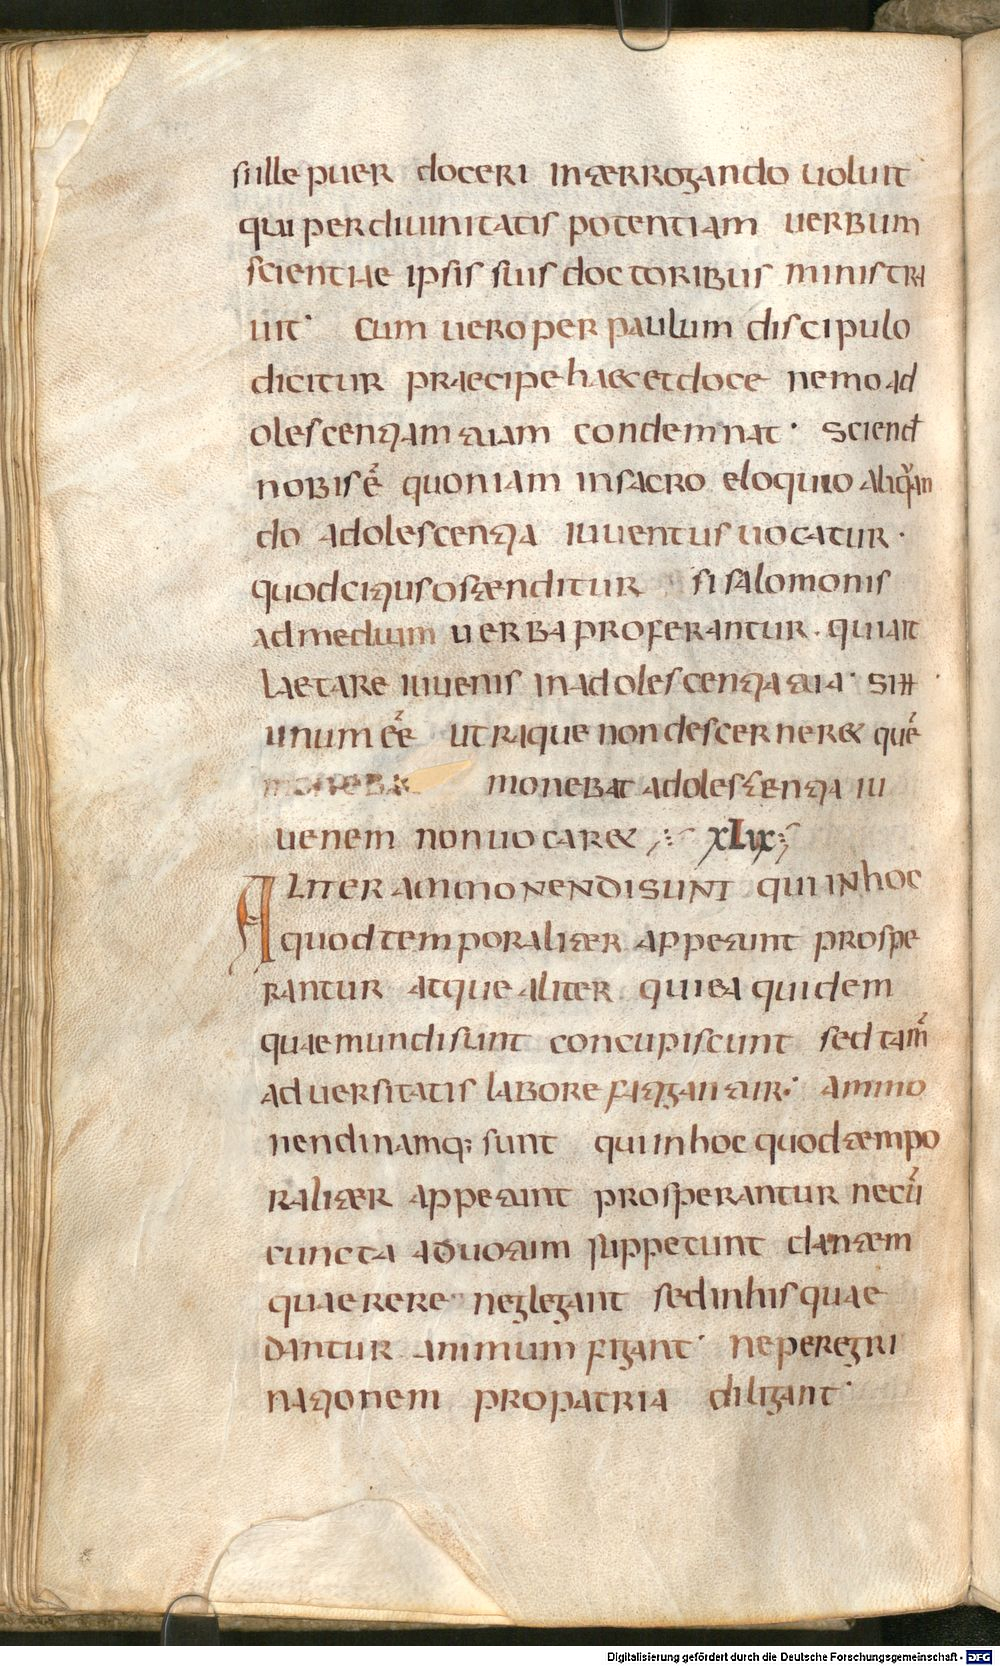 sille puer doceri interrogando uoluit
qui per diuinitatis potentiam uerbum
scientiae ipsis suis doctoribus ministra
uit· Cum uero per paulum discipulo
dicitur praecipe haec et doce nemo ad
olescentiam tuam condemnat· sciend̄
nobis ē quoniam in sacro eloquio aliqͣan
do adolescentia iuuentus uocatur·
quod citius ostenditur si salomonis
ad medium uerba proferantur· qui ait
laetare iuuenis in adolescentia tua· si H
unum eē utrique non descerneret quē
moneba monebat adolescentia iu
uenem non uocaret XLIX
Aliter ammonendi sunt qui in hoc
quod temporaliter appetunt prospe
rantur atque aliter qui ea quidem
quae mundi sunt concupiscunt sed tam̄
aduersitatis labore fatigantur· ammo
nendi namq; sunt qui in hoc quod tempo
raliter appetunt prosperantur ne cū
cuncta ad uotum suppetunt dantem
quaerere neglegant sed in his quae
dantur animum figant· ne peregri
nationem pro patria diligant·
Digitalisierung gefördert durch die Deutsche Forschungsgemeinschaft - DFG